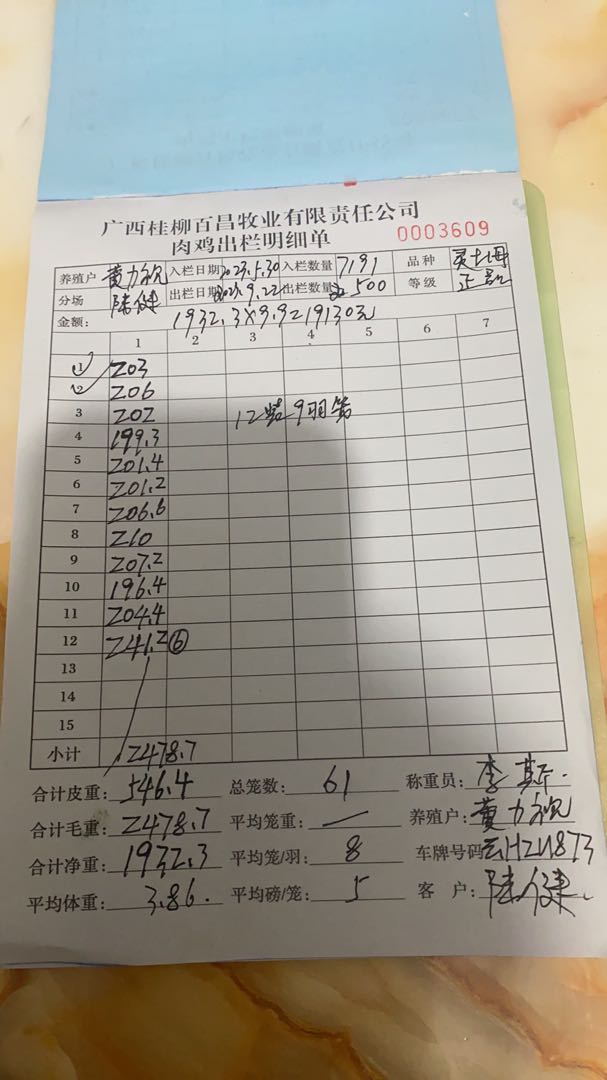 广西桂柳百昌牧业有限责任公司
肉鸡出栏明细单 0003609
养殖户 黄力欢 入栏日期 2023.5.30 入栏数量 7191 品种 灵土母
分场 陆健 出栏日期 2023.9.22 出栏数量 500 等级 正品
金额: 1932.3×9.9=19130元
1 2 3 4 5 6 7
1 203
2 206
3 202 12装9羽笼
4 199.3
5 201.4
6 201.2
7 206.6
8 210
9 207.2
10 196.4
11 204.4
12 241.2⑥
13
14
15
小计 2478.7
合计皮重: 546.4 总笼数: 61 称重员: 李
合计毛重: 2478.7 平均笼重: — 养殖户: 黄力欢
合计净重: 1932.3 平均笼/羽: 8 车牌号码 云H2U873
平均体重: 3.86. 平均磅/笼: 5 客 户: 陆健